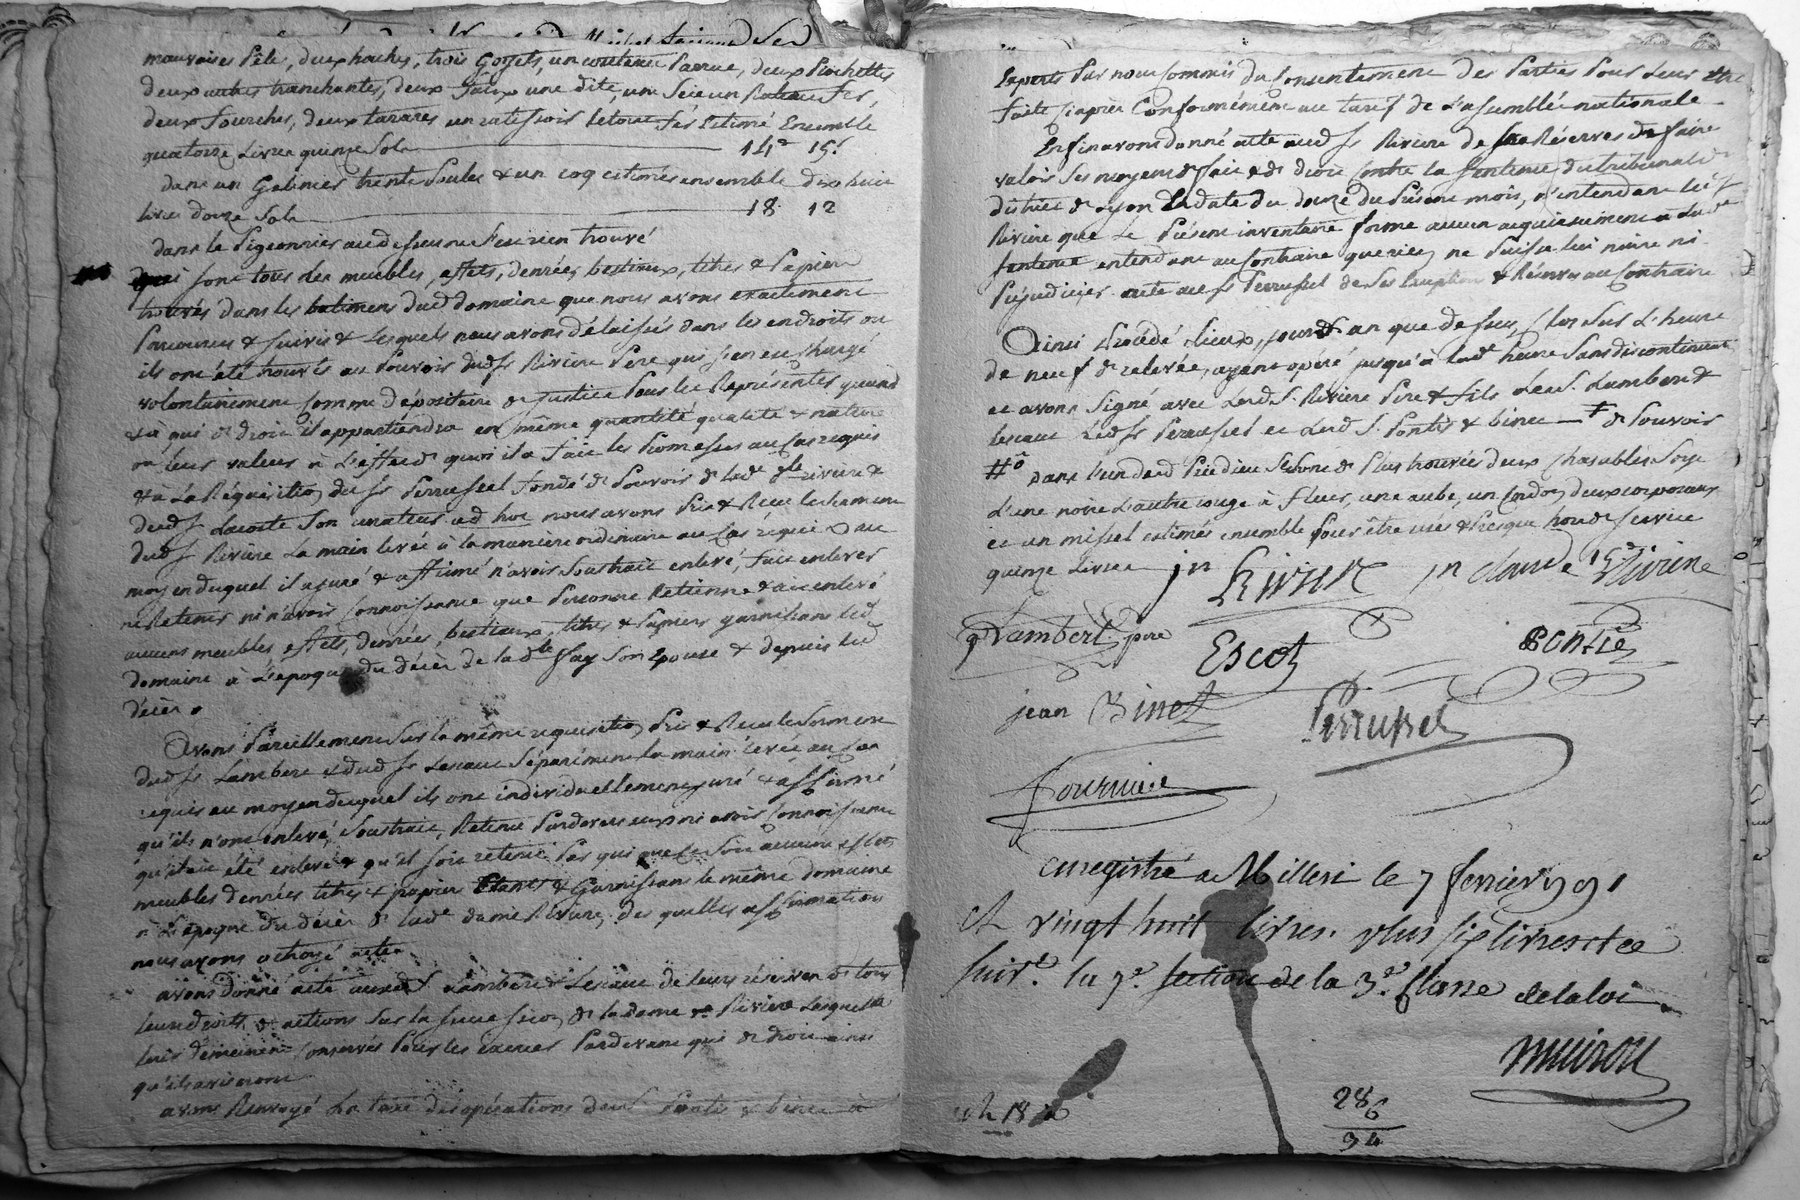 mauvaises Pêles, deux haches, trois Goyets, un couteau Parrue, deux Piochettes
deux autres tranchantes, deux faux une dite, une Scie un Rateau fer,
deux fourches, deux tarares un ratissoir le tout fer Estimé Ensemble
quatorze Livres quinze Sols 14# 15s
dans un Galinier trente Poules & un coq estimés ensemble dix huit
livres douze Sols 18 12
dans le Pigeonnier au dessus ne S'est rien trouvé
qui sont tous les meubles, effets, denrées, bestiaux, titres & Papiers
trouvés dans les batimens dud domaine que nous avons exactement
Parcourus & suivis & lesquels nous avons délaissés dans les endroits ou
ils ont été trouvés au Pouvoir dud Sr Riviere Pere qui s'en est chargé
volontairement comme dépositaire de justice Pour les Représenter quand
& à qui de droit il appartiendra en même quantité qualité & nature
ou leur valeur à l'effet de quoi il a fait les Promesses au Cas requis
& à La Réquisition du Sr Perrussel fondé de Pouvoir de lade dlle riviere &
dud Sr Lacoste Son curateur ad hoc nous avons Pris & Recu le serment
dud Sr Rivière La main levée à la maniere ordinaire au Cas requis au
moyen duquel il a juré & affirmé n'avoir Soustrait enlevé, fait enlever
ne Retenir ni n'avoir Connoissance que Personne Retienne & ait enlevé
aucuns meubles effets, denrées, bestiaux, titres & Papiers garnissans led
domaine à L'époque du décès de lade dlle fay Son Epouse & depuis led
décès.
Avons Pareillement Sur la même requisition Pris & Recu le Serment
dud Sr Lambert & dud Sr Lescaut Séparément la main levée au Cas
requis au moyen duquel ils ont individuellement juré & affirmé
qu'ils n'ont enlevé, Soustrait, Retenu Pardevers eux ni avoir Connoissance
qu'il ait été enlevé & qu'il soit retenu Par qui que ce Soit aucuns effets
meubles denrées titres & papiers Etant & Garnissans le même domaine
à L'époque du décès de lade dame Riviere, des quelles affirmations
nous avons octroyé acte
avons donné acte auxd Srs Lambert & Lescaut de leurs réserves de tous
leurs droits & actions Sur la Succession de la Dame Riviere Lesquels
leurs demeurent Conservés Pour les exercer Pardevant qui de droit ainsi
qu'ils aviseront
avons Renvoyé La taxe des opérations des Srs Pontis & binet à
Experts Par nous Commis du Consentement des Parties Pour Leur être
faite ci après Conformément au tarif de L'assemblée nationale
Enfin avons donné acte aud Sr Riviere de Ses Réserves de faire
valoir Ses moyens de fait & de droit Contre la Sentence du tribunal de
district de Lyon En date du douze du Présent mois, n'entendant led Sr
Riviere que Le Présent inventaire forme aucun acquiescement à lade
Sentence entendant au Contraire que rien ne Puisse lui nuire ni
Préjudicier acte au Sr Perrussel de Ses Exceptions & Réserves au Contraire
Ainsi Procédé Lieux, jour & an que dessus, Clos Sur L'heure
de neuf de relevée, ayant opéré jusqu'à lade heure Sans discontinuer
et avons Signé avec Lesd Srs Riviere Pere & fils Led Sr Lambert &
Lescaut Led Sr Perrussel et Lesd Srs Pontis & binet — de Pouvoir
dans l'un desd Prie dieu Se Sont de Plus trouvées deux Chasubles Soye
d'une noire L'autre rouge à fleurs, une aube, un Cordon, deux corporaux
et un missel estimés ensemble Pour être usés & Presque hors de Service
quinze Livres jn Rivier jn claude Riviere
Lambert pere Escot Pontis
jean Binet Perrussel
Fournier
enregistré a Milleri le 7 fevrier 1791
et vingt huit livres plus six livres et ce
suivt. la 7e. section de la 3e. Classe de la loi
muiron
28
6
34